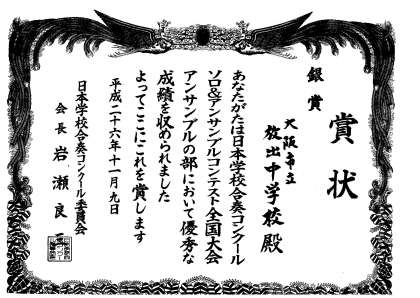 賞状
銀賞
大阪市立
放出中学校殿
あなたがたは日本学校合奏コンクール
ソロ&アンサンブルコンテスト全国大会
アンサンブルの部において優秀な
成績を収められました
よってここにこれを賞します
平成二十六年十一月九日
日本学校合奏コンクール委員会
会長 岩瀬良